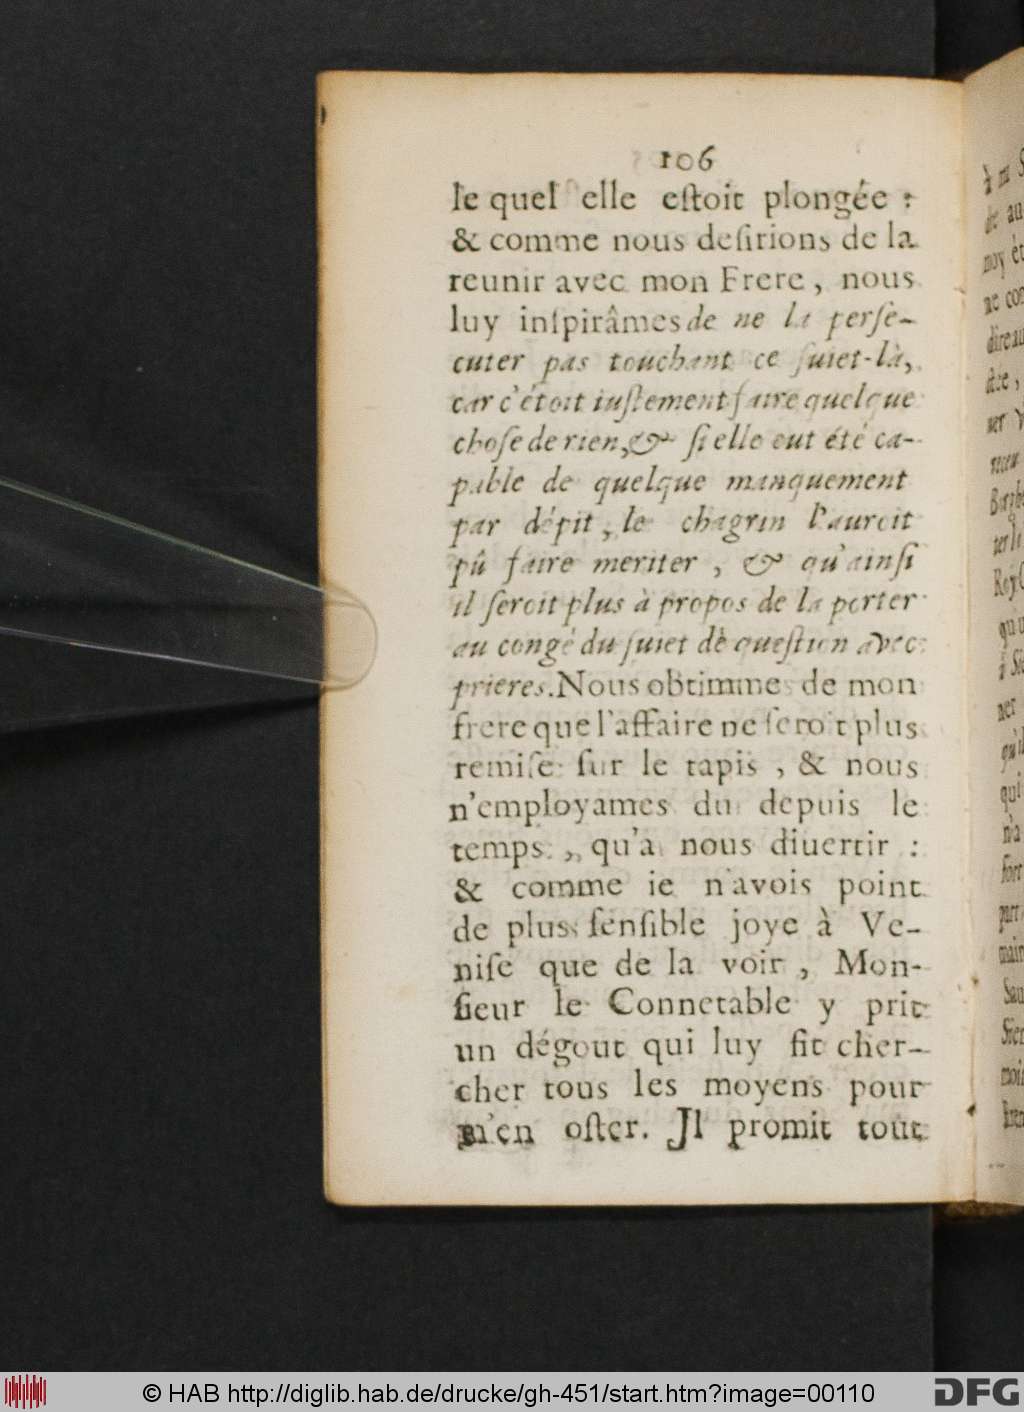 106
le quel elle eſtoit plongée :
& comme nous deſirions de la
reunir avec mon Frere, nous
luy inſpirâmes de ne la perſe-
cuter pas touchant ce ſuiet-là,
car c'étoit iuſtement faire quelque
choſe de rien, & ſi elle eut été ca-
pable de quelque manquement
par dépit, le chagrin l'auroit
pû faire meriter, & qu'ainſi
il ſeroit plus à propos de la porter
au congé du ſuiet dè queſtion avec
prieres. Nous obtimmes de mon
frere que l'affaire ne ſeroit plus
remiſe ſur le tapis, & nous
n'employames du depuis le
temps, qu'a nous diuertir :
& comme ie n'avois point
de plus ſenſible joye à Ve-
niſe que de la voir, Mon-
ſieur le Connetable y prit
un dégout qui luy fit cher-
cher tous les moyens pour
m'en oſter. Jl promit tout
© HAB http://diglib.hab.de/drucke/gh-451/start.htm?image=00110
DFG